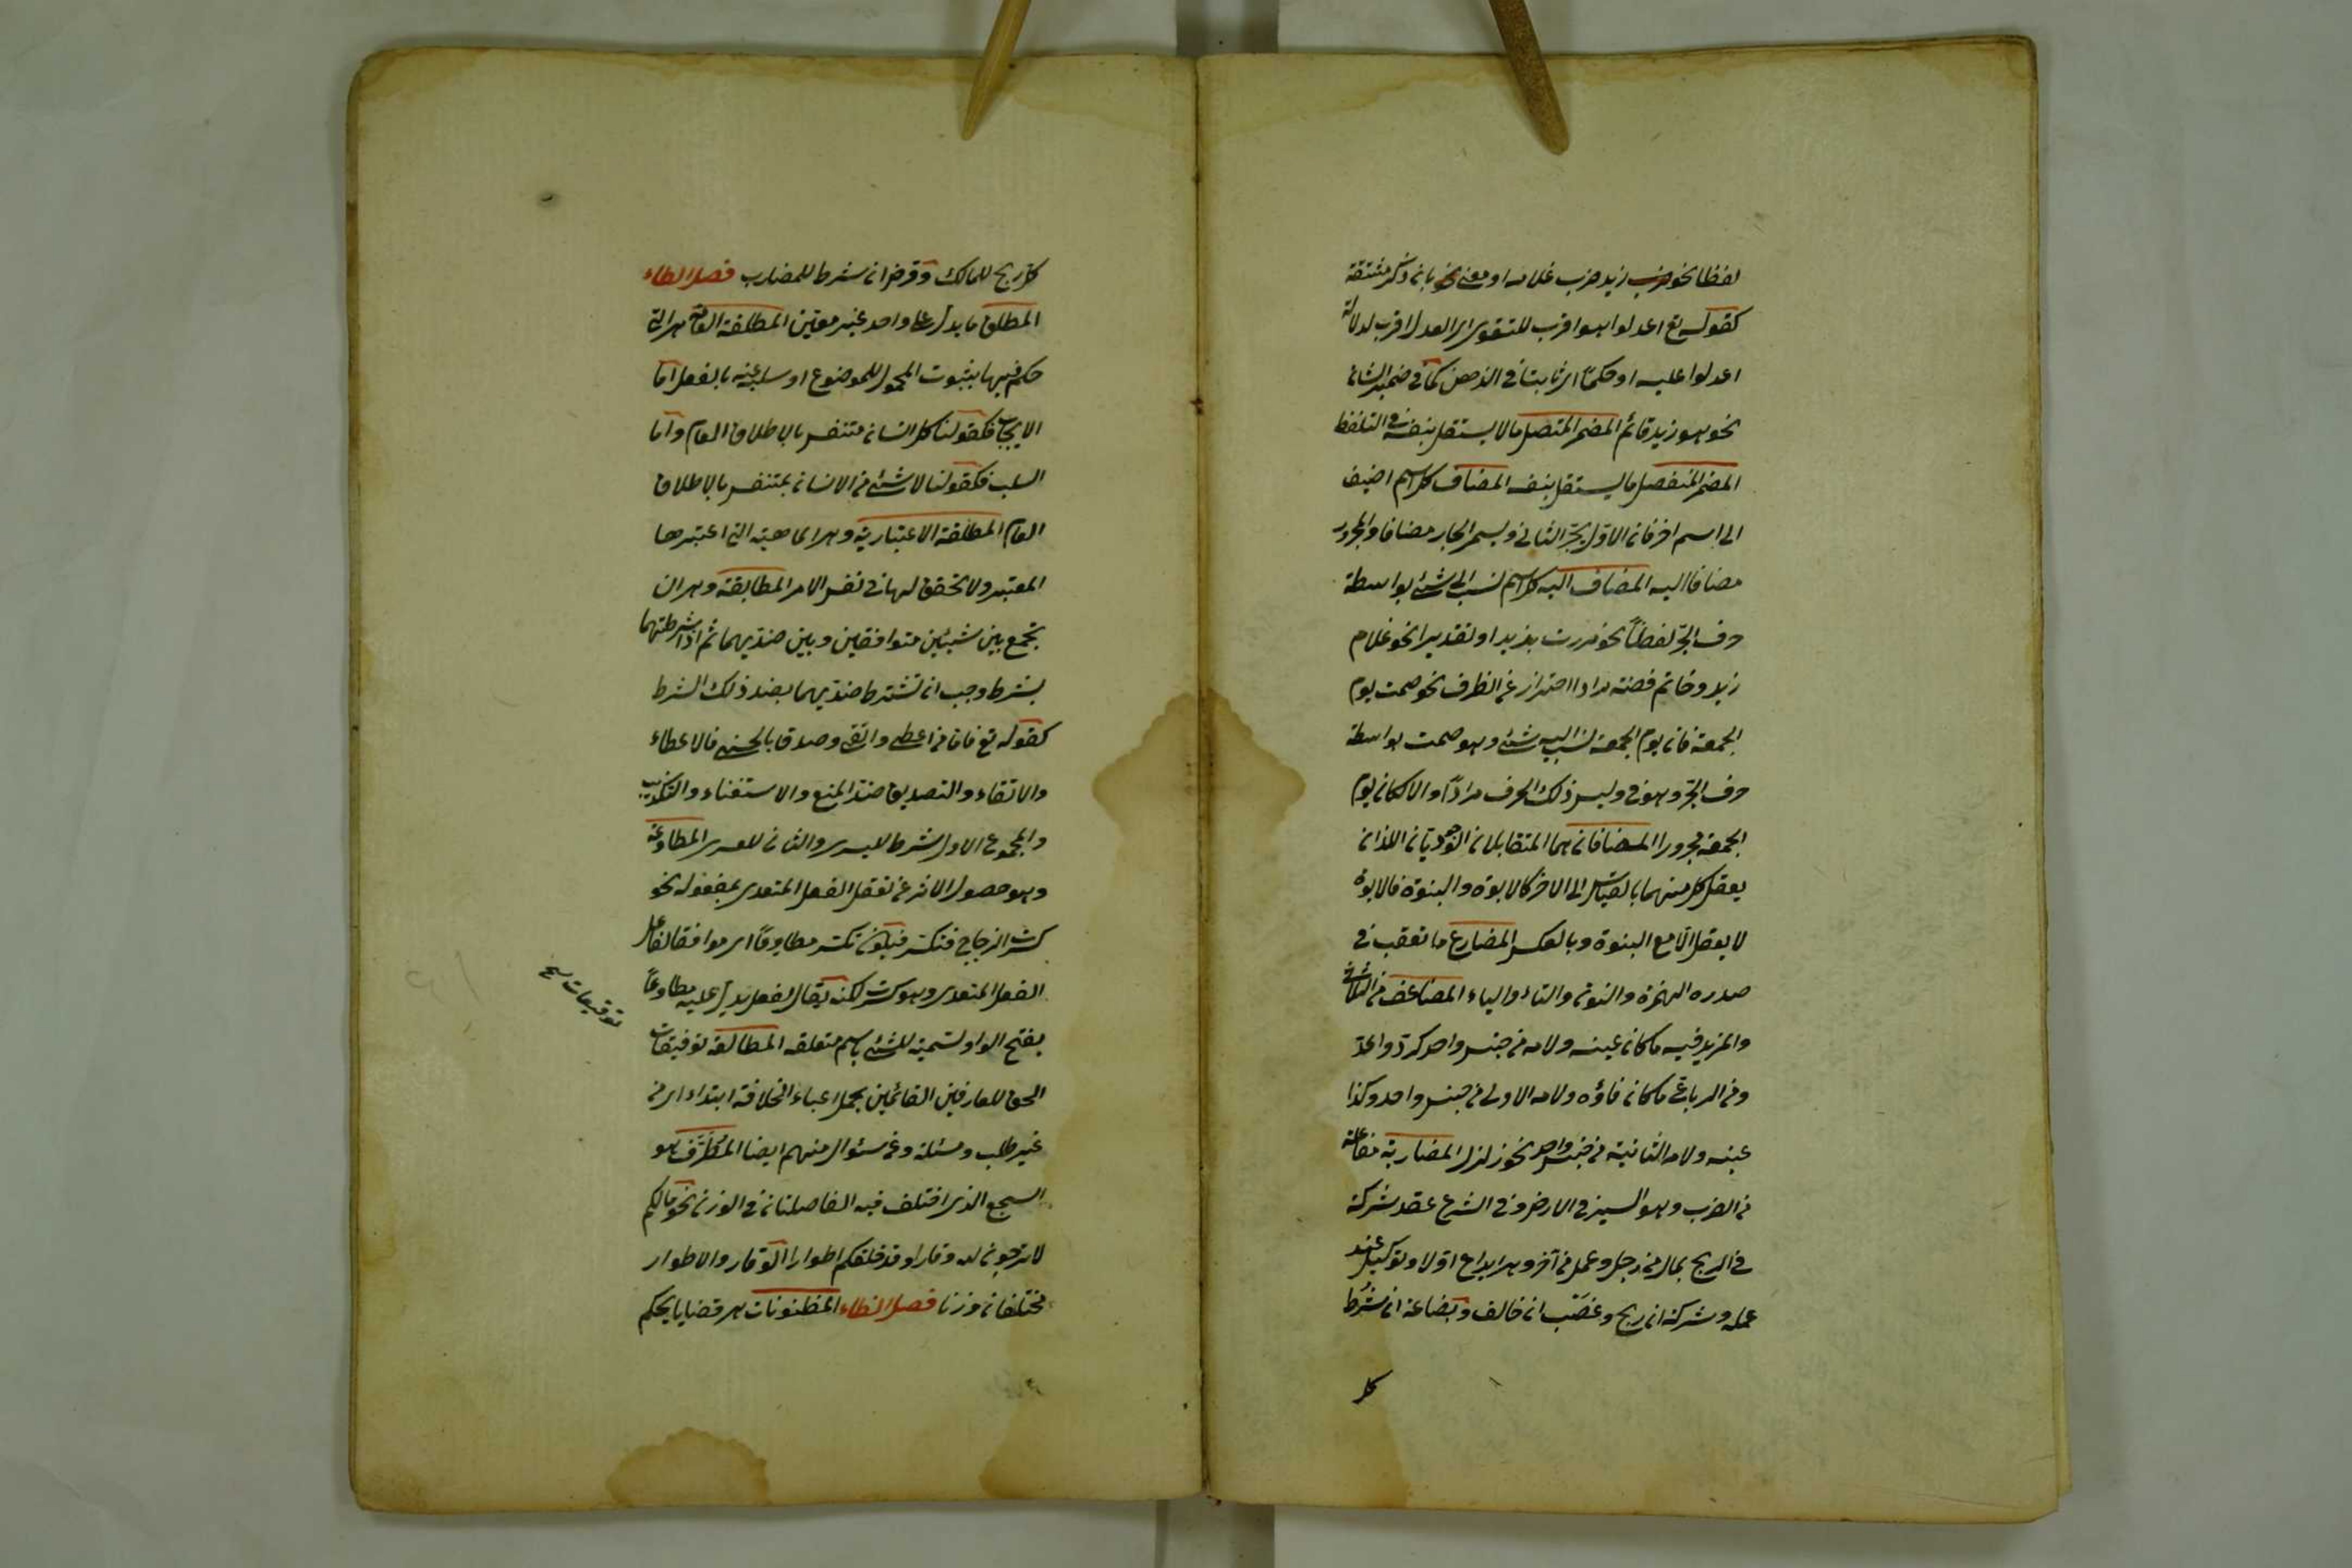 لفظا نحو ضرب زيد ضرب غلامه او معنى نحو بان ذكر مشتقة
كقوله تع اعدلوا هو اقرب للتقوى اى العدل اقرب لدلالة
اعدلوا عليه او حكمًا اى ثابتا فى الذهن كما فى ضمير الشان
نحو هو زيد قائم المضمر المتصل ما لا يستقل بنفسه فى التلفظ
المضمر المنفصل ما يستقل بنفسه المضاف كل اسم اضيف
الى اسم اخر فان الاول يجر الثانى ويسمى الجار مضافا والمجرور
مضافا اليه المضاف اليه كل اسم نسب الى شئ بواسطة
حرف الجر لفظًا نحو مررت بزيد او تقديرا نحو غلام
زيد وخاتم فضة مرادا احتراز عن الظرف نحو صمت يوم
الجمعة فان يوم الجمعة نسب اليه شئ وهو صمت بواسطة
حرف الجر وهو فى وليس ذلك الحرف مرادًا والا لكان يوم
الجمعة مجرورا المضافان هما المتقابلان الوجوديان اللذان
يعقل كل منهما بالقياس الى الاخر كالابوة والبنوة فالابوة
لا يعقل الا مع البنوة وبالعكس المضارع ما تعقب فى
صدره الهمزة والنون والتاء والياء المضاعف من الثلاثى
والمزيد فيه ما كان عينه ولامه من جنس واحد كرد واعد
ومن الرباعى ما كان فاؤه ولامه الاولى من جنس واحد وكذا
عينه ولامه الثانية من جنس واحد نحو زلزل المضاربة مفاعلة
من الضرب وهو السير فى الارض وفى الشرع عقد شركة
فى الربح بمال من رجل وعمل من آخر وهى ايداع اولا وتوكيل عند
عمله وشركة ان ربح وغصب ان خالف وبضاعة ان شرط
كل
كل ربح للمالك وقرض ان شرط للمضارب فصل الطاء
المطلق ما يدل على واحد غير معين المطلقة العامة هى التى
حكم فيها بثبوت المحمول للموضوع او سلبه عنه بالفعل اما
الايجاب فكقولنا كل انسان متنفس بالاطلاق العام واما
السلب فكقولنا لا شئ من الانسان بمتنفس بالاطلاق
العام المطلقة الاعتبارية وهى الماهية التى اعتبرها
المعتبر ولا تحقق لها فى نفس الامر المطابقة وهى ان
تجمع بين شيئين متوافقين وبين ضديهما ثم اذا شرطتهما
بشرط وجب ان تشترط ضديهما بضد ذلك الشرط
كقوله تع فاما من اعطى واتقى وصدق بالحسنى فالاعطاء
والاتقاء والتصديق ضد المنع والاستغناء والتكذيب
والمجموع الاول شرط لليسرى والثانى للعسرى المطاوعة
وهو حصول الاثر عن تعقل الفعل المتعدى بمفعوله نحو
كسرت الزجاج فتكسر فيكون تكسر مطاوعًا اى موافقا لفاعل
الفعل المتعدى وهو كسرت لكنه يقال لفعل يدل عليه مطاوعًا
بفتح الواو تسمية للشئ باسم متعلقه المطالعة توفيقات
توقيعات نسخ
الحق للعارفين القائمين بحمل اعباء الخلافة ابتداء اى من
غير طلب ومسئلة وعن سئوال منهم ايضا المُطَرَّف هو
السجع الذى اختلف فيه الفاصلتان فى الوزن نحو مالكم
لا ترجون لله وقارا وقد خلقكم اطوارا الوقار والاطوار
مختلفان وزنا فصل الظاء المظنونات هى قضايا يحكم